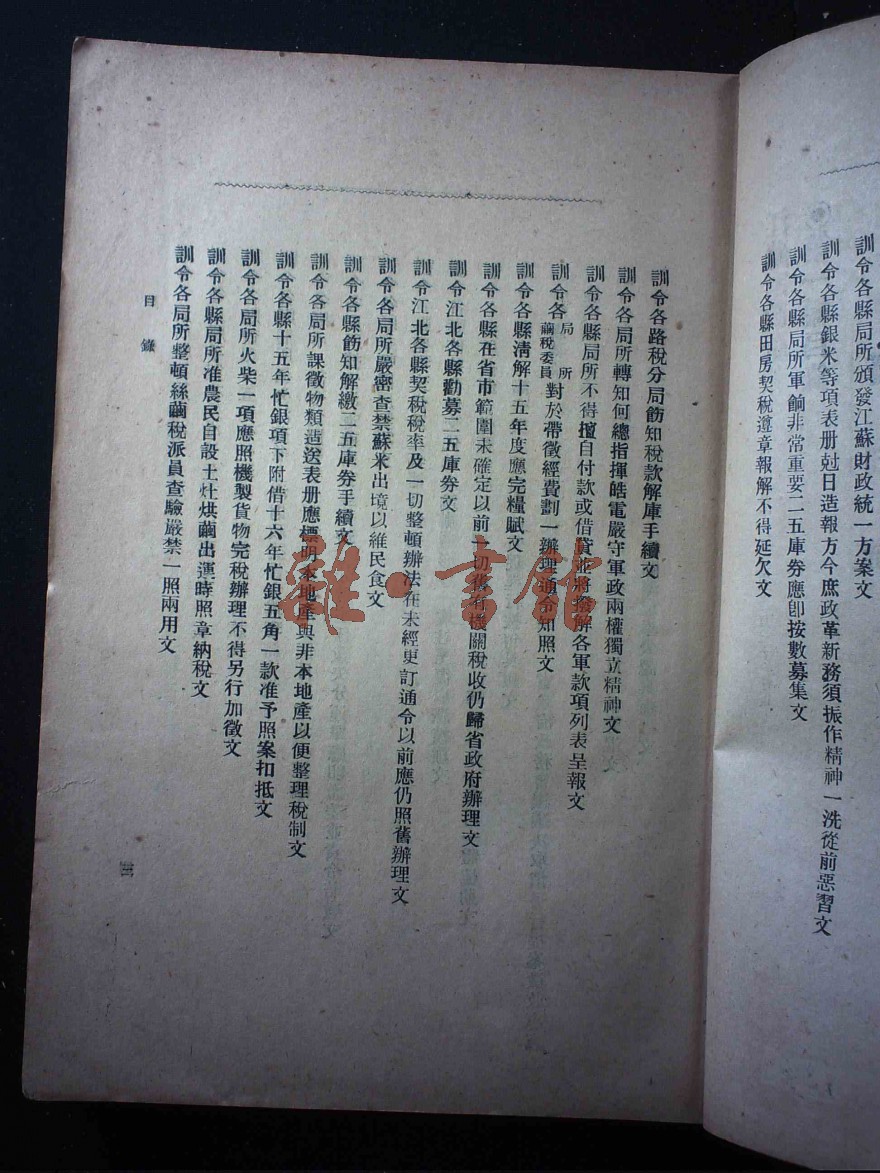 訓令各縣局所頒發江蘇財政統一方案文
訓令各縣銀米等項表册尅日造報方今庶政革新務須振作精神一洗從前惡習文
訓令各縣局所軍餉非常重要二五庫券應卽按數募集文
訓令各縣田房契稅遵章報解不得延欠文
訓令各路稅分局飭知稅款解庫手續文
訓令各局所轉知何總指揮皓電嚴守軍政兩權獨立精神文
訓令各縣局所不得擅自付款或借貸並將撥解各軍款項列表呈報文
訓令各局所繭稅委員對於帶徵經費劃一辦理通令知照文
訓令各縣淸解十五年度應完糧賦文
訓令各縣在省市範圍未確定以前一切舊有機關稅收仍歸省政府辦理文
訓令江北各縣勸募二五庫券文
訓令江北各縣契稅稅率及一切整頓辦法在未經更訂通令以前應仍照舊辦理文
訓令各局所嚴密查禁蘇米出境以維民食文
訓令各縣飭知解繳二五庫券手續文
訓令各局所課徵物類造送表册應標明本地產與非本地產以便整理稅制文
訓令各縣十五年忙銀項下附借十六年忙銀五角一款准予照案扣抵文
訓令各局所火柴一項應照機製貨物完稅辦理不得另行加徵文
訓令各縣局所准農民自設土灶烘繭出運時照章納稅文
訓令各局所整頓絲繭稅派員查驗嚴禁一照兩用文
目錄
三
雜·書館